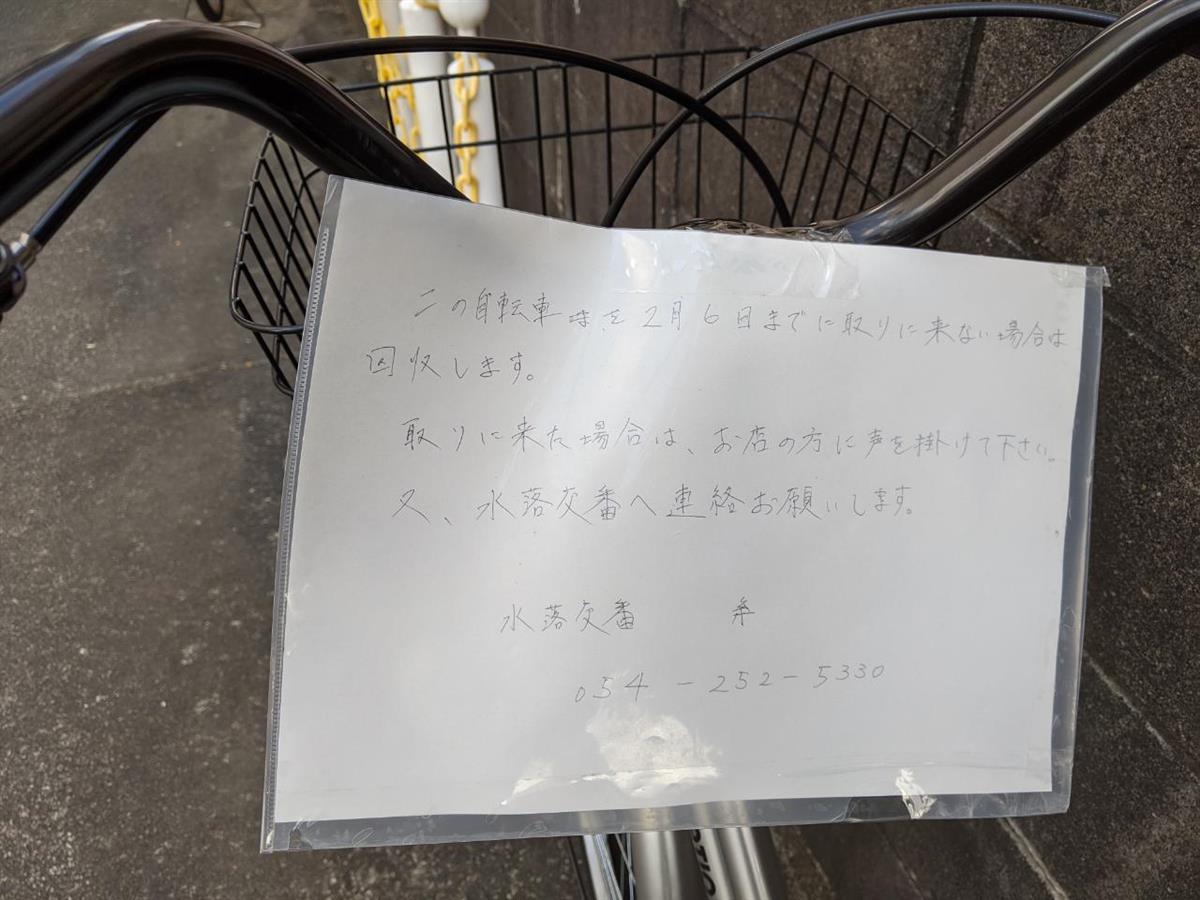 この自転車を2月6日までに取りに来ない場合は
回収します。
取りに来た場合は、お店の方に声を掛けて下さい。
又、水落交番へ連絡お願いします。
水落交番
054-252-5330